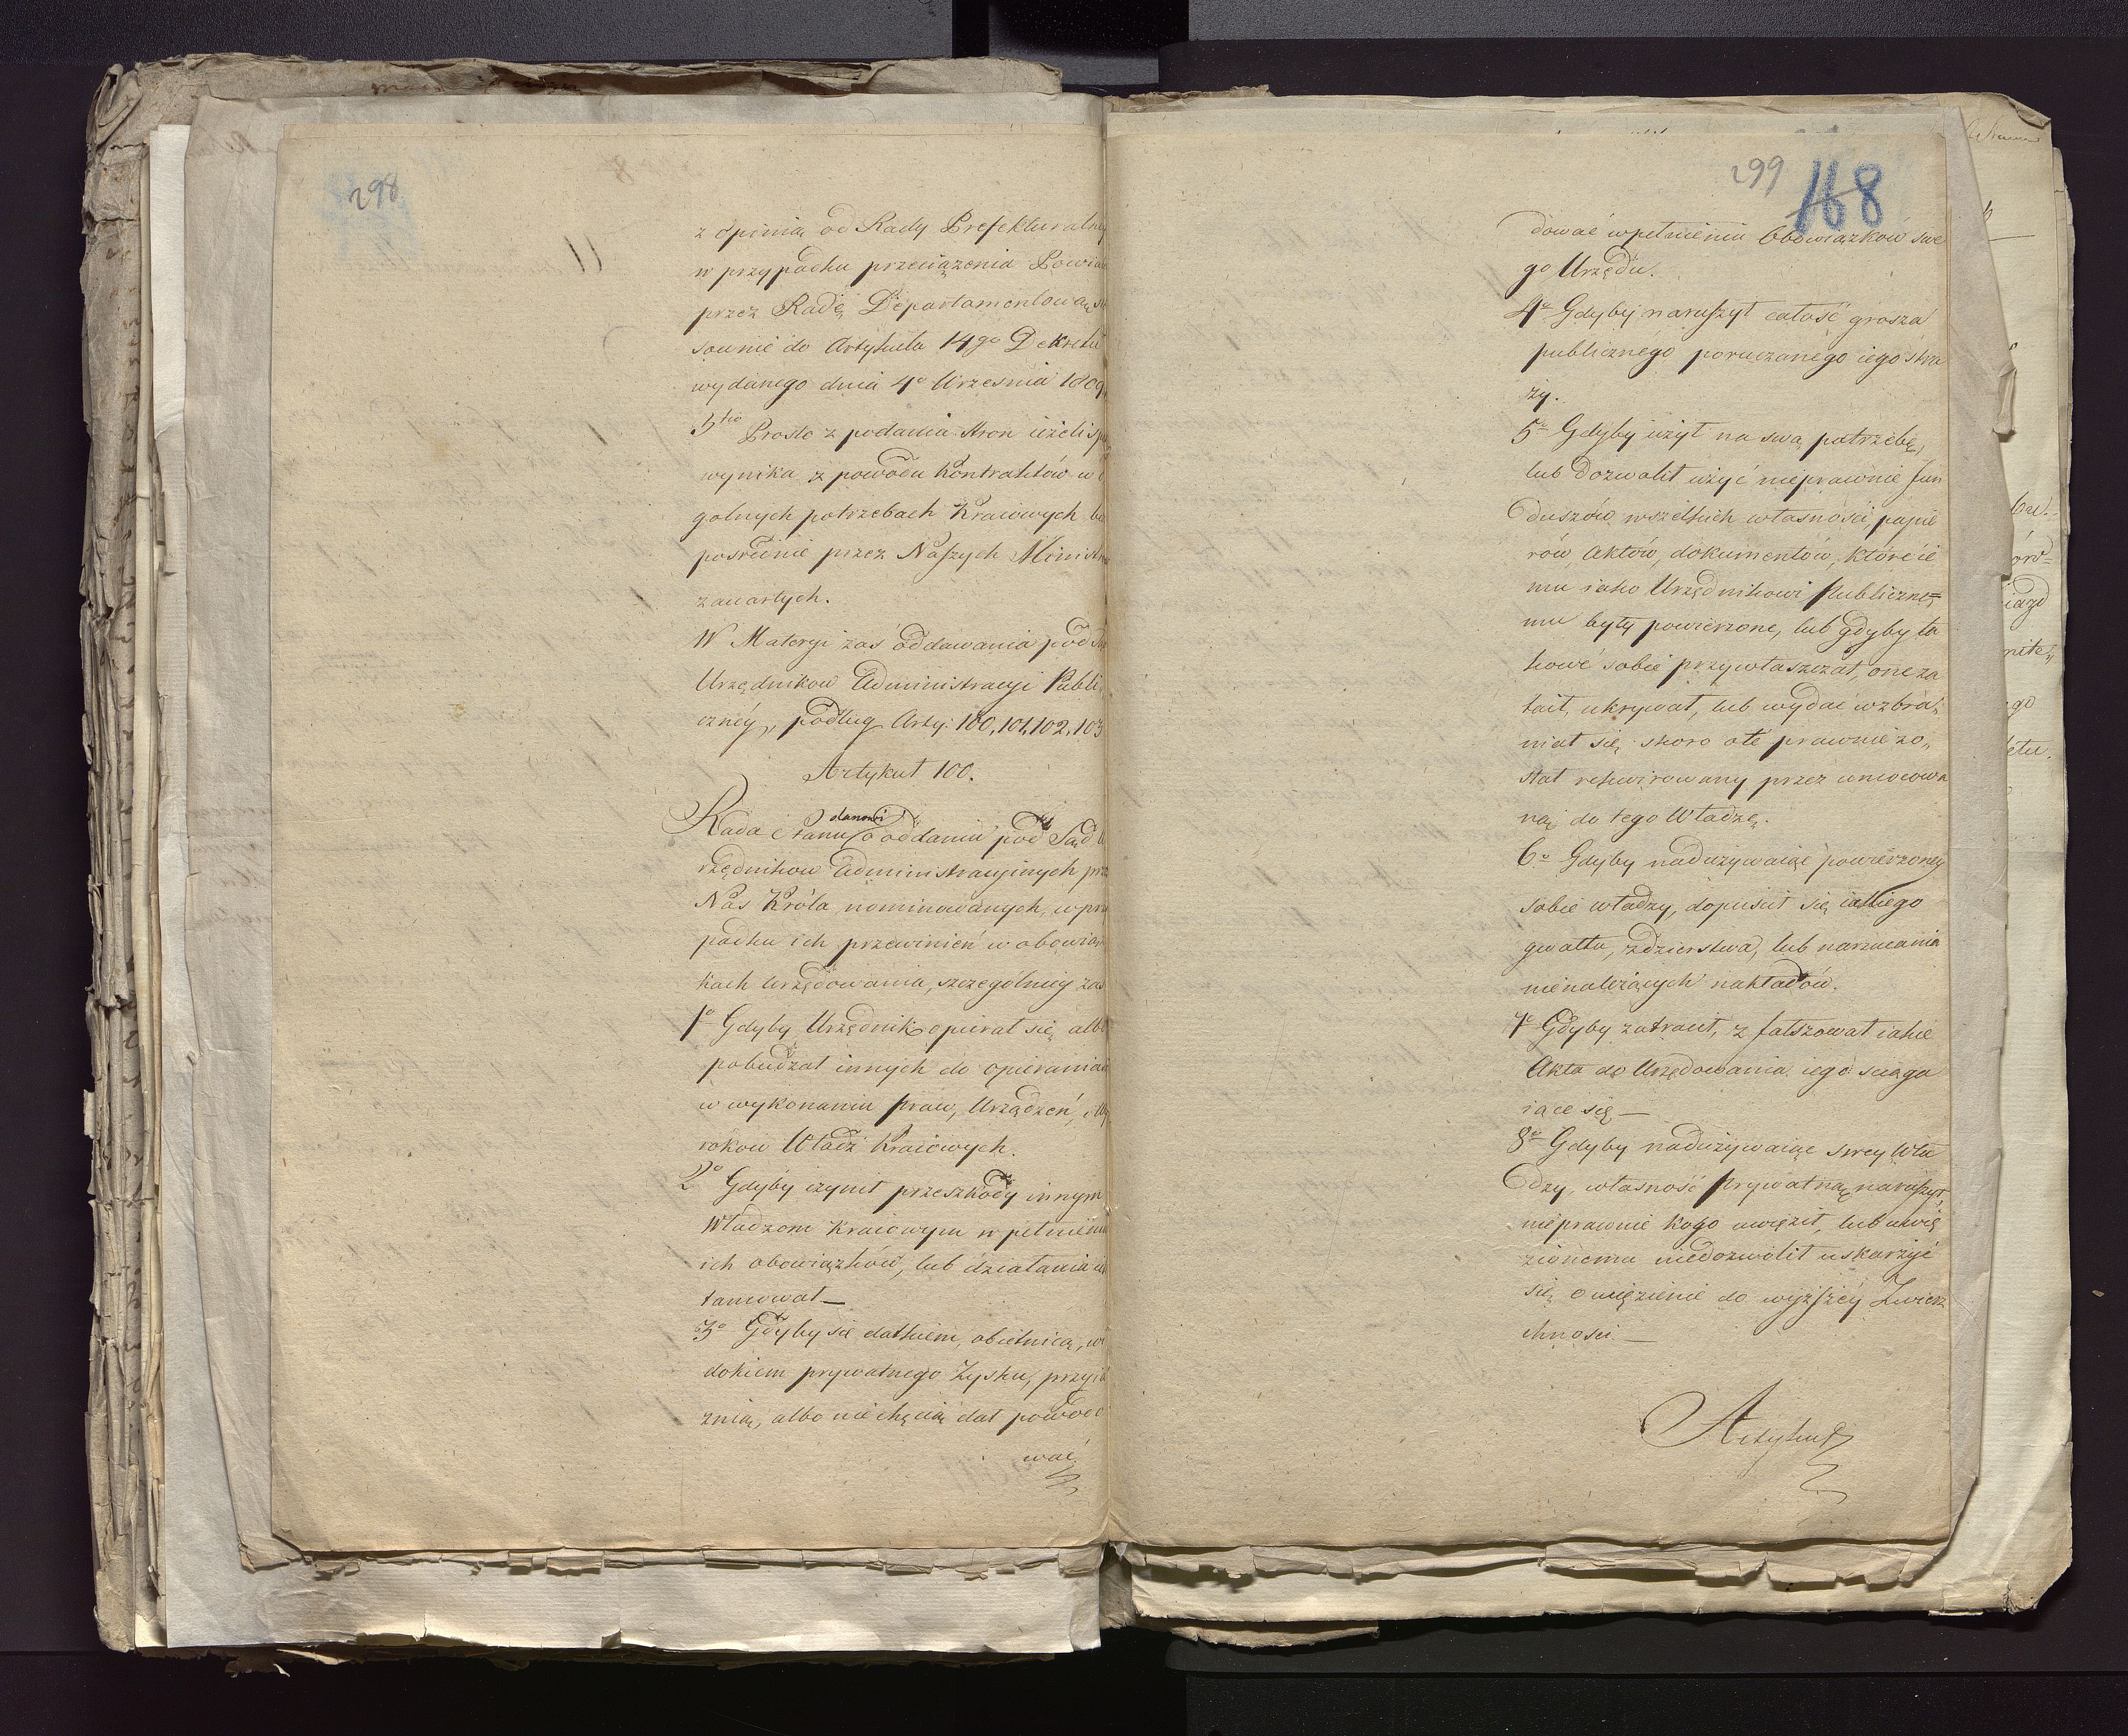 298
z opinią od Rady Prefekturalney
w przypadku przeciążenia Powiatu
przez Radę Departamentową
sownie do Artykułu 14go Dekretu
wydanego dnia 4o Września 1809
3tio Prosto z podania stron ieżeli
wynika z powodu Kontraktów w
gólnych potrzebach Kraiowych be
pośrednie przez Naszych Ministr
zawartych.
W Materyi zaś oddawania pod Są
Urzędnikow Administracyi Publi
czney, podług Arty: 100, 101, 102, 103
Artykuł 100.
stanowi
Rada Stanu o oddaniu pod Sąd U
rzędnikow Administracyinych prze
Nas Króla nominowanych, w przy
padku ich przewinień w obowiąz
kach Urzędowania, szczególniey zaś
1o Gdyby Urzędnik opierał się albo
pobudzał innych do opierania
w wykonaniu praw, Urządzeń, i Wy
rokow Władz Kraiowych.
2o Gdyby czynił przeszkody innym
Władzom Kraiowym w pełnieniu
ich obowiązków, lub działania ich
tamował —
3o Gdyby się datkiem, obietnicą, wi
dokiem prywatnego Zysku, przyia
znią, albo niechęcią dał powodo
wać
299 168
dować w pełnieniu Obowiązków swe
go Urzędu.
4o Gdyby naruszył całość grosza
publicznego poruczonego iego stra
ży.
5o Gdyby użył na swą potrzebę,
lub dozwolił użyć nieprawnie fun
duszów, wszelkich własności papie
rów, aktów, dokumentów, które ie
mu iako Urzędnikowi Publiczne=
mu były powierzone, lub gdyby ta
kowe sobie przywłaszczał, one za
taił, ukrywał, lub wydać wzbra„
niał się, skoro o te prawnie zo„
stał rekwirowany przez umocowa
ną do tego Władzę.
6o Gdyby nadużywaiąc powierzoney
sobie władzy, dopuścił się iakiego
gwałtu, zdzierstwa, lub narzucania
nienależących nakładów.
7o Gdyby zatracił, z fałszował iakie
Akta do Urzędowania iego sciąga
iące się —
8o Gdyby nadużywaiąc swey Wła
dzy, własność prywatną naruszył,
nieprawnie kogo uwięził, lub uwię
zionemu niedozwolił uskarżyć
się o uwięzienie do wyższey Zwierz
chności —
Artykuł